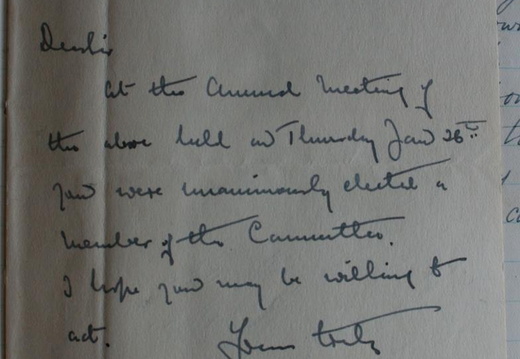 Dear Sir
At the Annual Meeting of
the above held on Thursday Jan 26th
you were unanimously elected a
member of the Committee.
I hope you may be willing to
act.
Yours truly